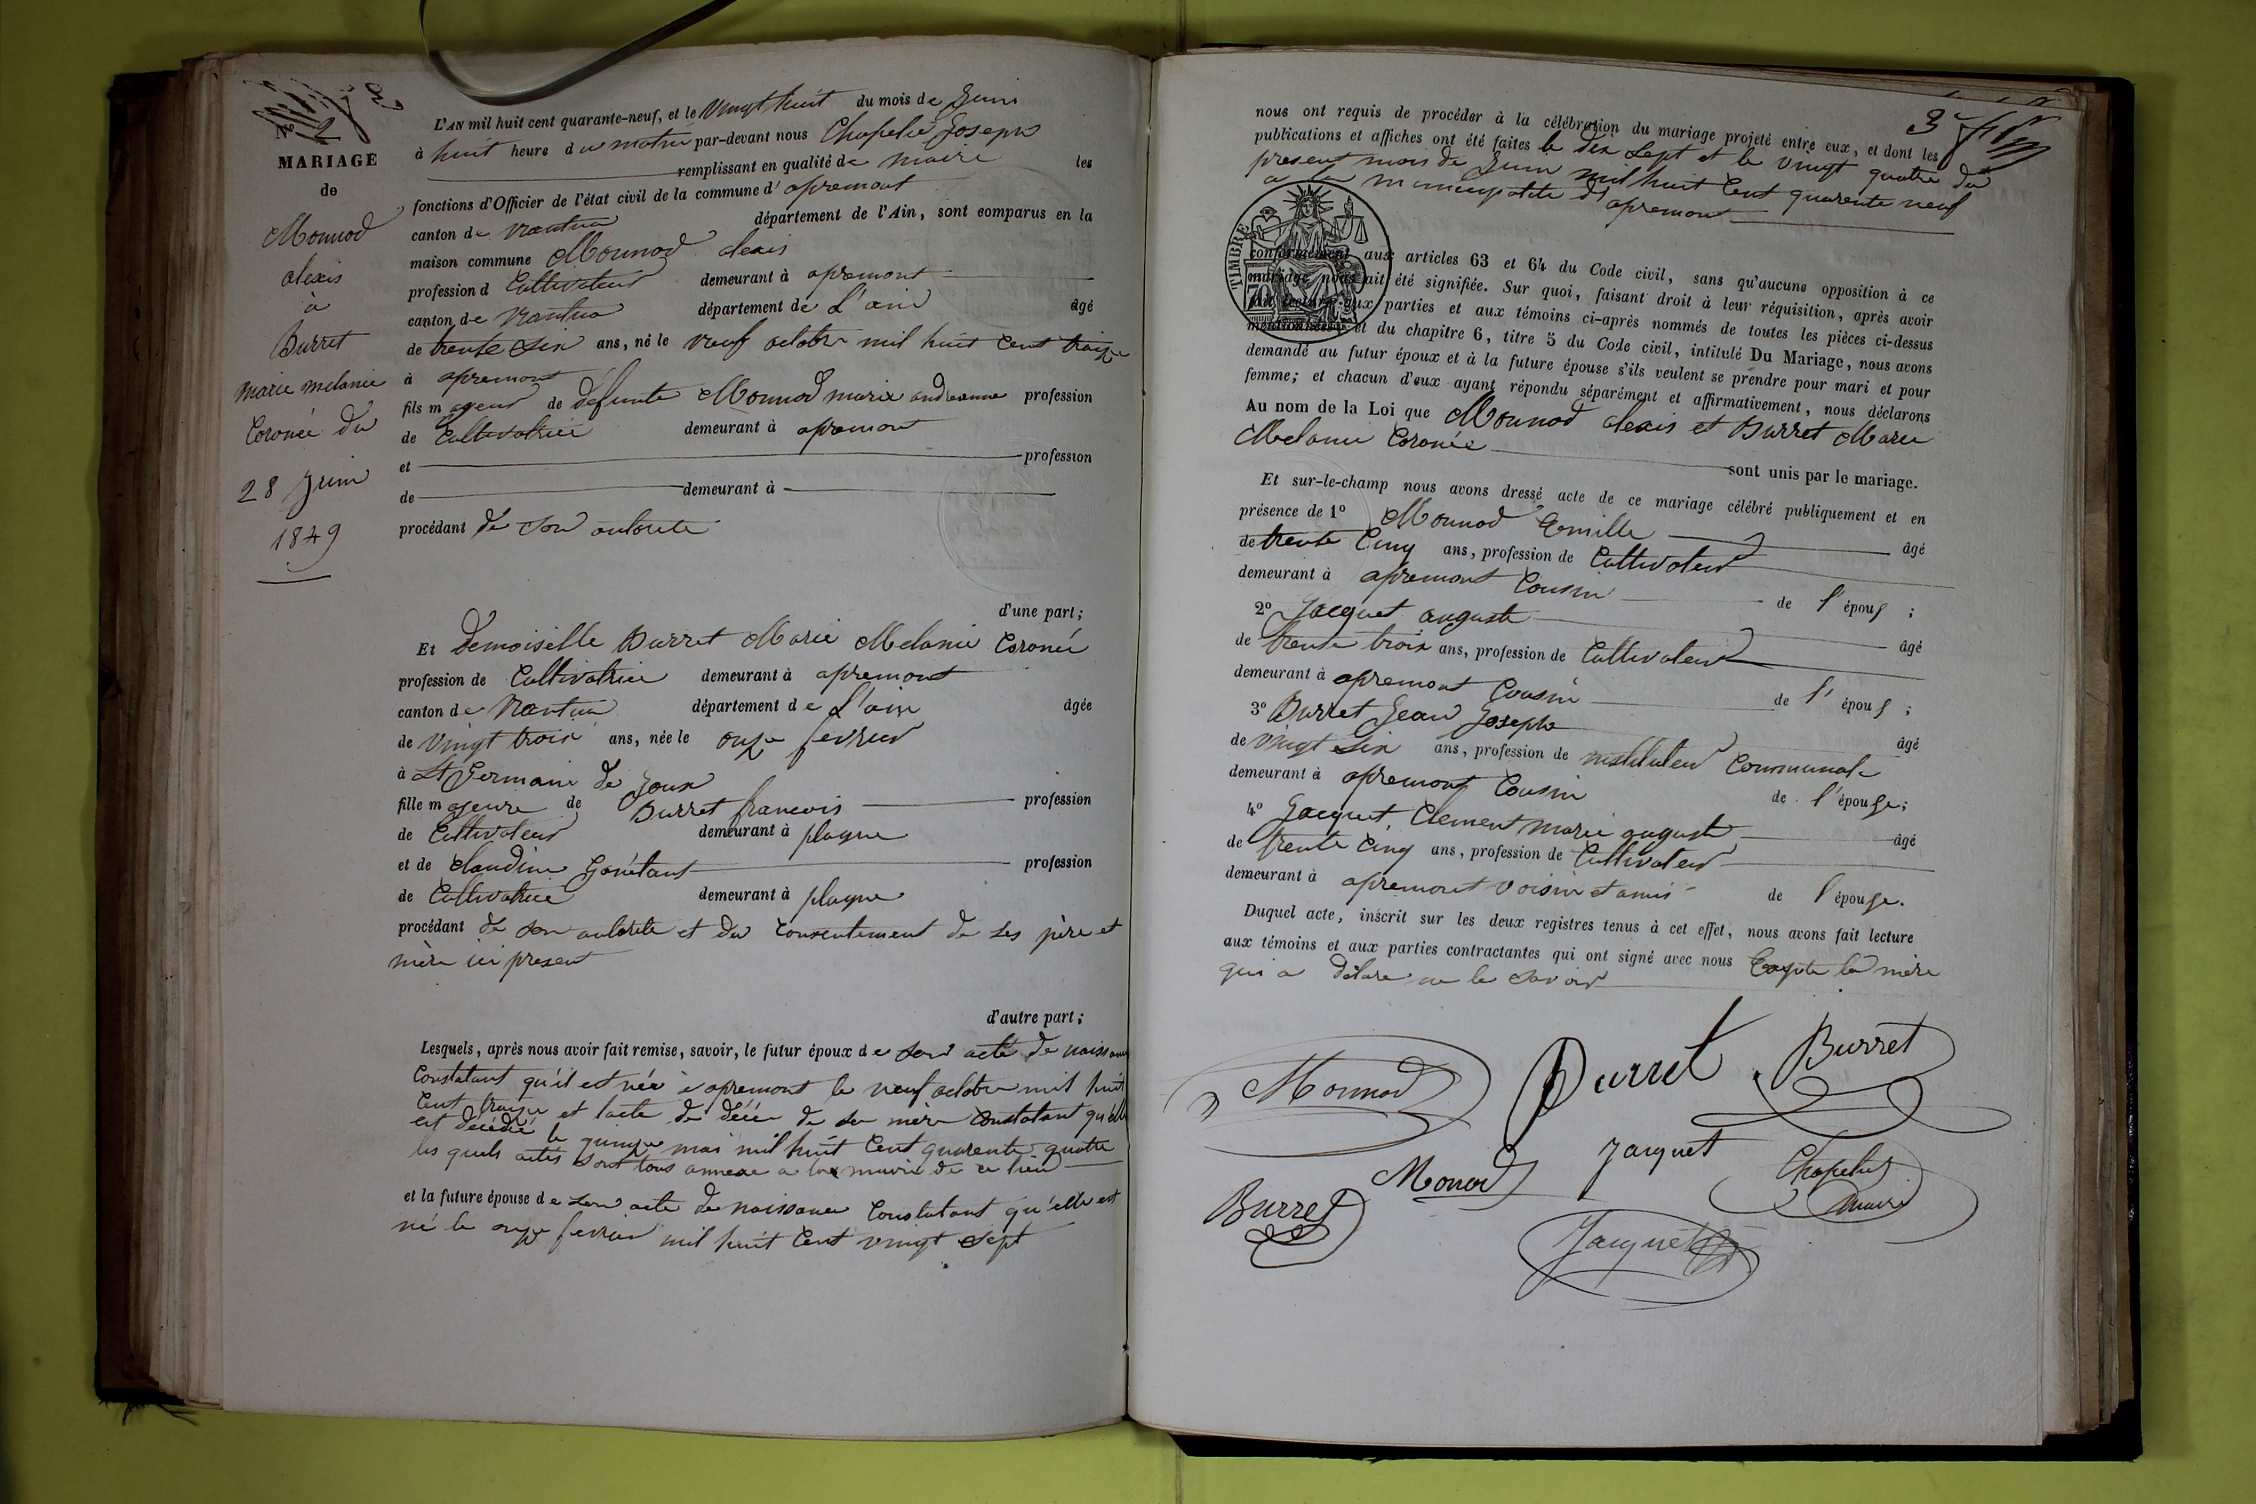 N° 2
MARIAGE
de
Mounod
alexis
à
Burret
marie melanie
Coronée du
28 Juin
1849
L'AN mil huit cent quarante-neuf, et le Vingt huit du mois de Juin
à huit heure du matin par-devant nous Chapelu Joseph
remplissant en qualité de maire les
fonctions d'Officier de l'état civil de la commune d'apremont
canton de Nantua département de l'Ain, sont comparus en la
maison commune Mounod alexis
profession d Cultivateur demeurant à apremont
canton de Nantua département de L'ain âgé
de trente Six ans, né le neuf octobre mil huit Cent treize
à apremont
fils majeur de défunte Mounod marie andreanne profession
de Cultivatrice demeurant à apremont
et profession
de demeurant à
procédant de son autorite
d'une part;
Et Demoiselle Burret Marie Melanie Coronée
profession de Cultivatrice demeurant à apremont
canton de Nantua département de L'ain âgée
de Vingt trois ans, née le onze fevrier
à St Germain de Joux
fille majeure de Burret francois profession
de Cultivateur demeurant à plagne
et de Claudine Gonétant profession
de Cultivatrice demeurant à plagne
procédant de son autorite et du consentement de ses père et
mère ici present
d'autre part;
Lesquels, après nous avoir fait remise, savoir, le futur époux de son acte de naissance
Constatant qu'il est née à apremont le neuf octobre mil huit
Cent treize et l'acte de décé de sa mère Constatant qu'elle
est décédé le quinze mai mil huit Cent quarente quatre
les quels actes sont tous annexe a la mairie de ce lieu
et la future épouse de son acte de naissance Constatant qu'elle est
né le onze fevrier mil huit Cent vingt Sept
nous ont requis de procéder à la célébration du mariage projeté entre eux, et dont les
publications et affiches ont été faites le dix Sept et le vingt quatre du
present mois de Juin mil huit Cent quarente neuf
a la municipalite d'apremont
TIMBRE
70
conformément aux articles 63 et 64 du Code civil, sans qu'aucune opposition à ce
mariage nous ait été signifiée. Sur quoi, faisant droit à leur réquisition, après avoir
fait lecture aux parties et aux témoins ci-après nommés de toutes les pièces ci-dessus
mentionnées et du chapitre 6, titre 5 du Code civil, intitulé Du Mariage, nous avons
demandé au futur époux et à la future épouse s'ils veulent se prendre pour mari et pour
femme; et chacun d'eux ayant répondu séparément et affirmativement, nous déclarons
Au nom de la Loi que Mounod alexis et Burret Marie
Melanie Coronée
sont unis par le mariage.
Et sur-le-champ nous avons dressé acte de ce mariage célébré publiquement et en
présence de 1° Mounod Emille âgé
de trente Cinq ans, profession de Cultivateur
demeurant à apremont Cousin de l'épous;
2° Jacquet auguste âgé
de trente trois ans, profession de Cultivateur
demeurant à apremont Cousin de l'épous;
3° Burret Jean Joseph âgé
de Vingt Six ans, profession de instituteur Communale
demeurant à apremont Cousin de l'épouse;
4° Jacquet Clement marie auguste âgé
de trente Cinq ans, profession de Cultivateur
demeurant à apremont voisin et amis de l'épouse.
Duquel acte, inscrit sur les deux registres tenus à cet effet, nous avons fait lecture
aux témoins et aux parties contractantes qui ont signé avec nous Exepte la mère
qui a déclare ne le savoir
Mounod Burret Burret
Monod Jacquet Chapelu
maire
Burret
Jacquet